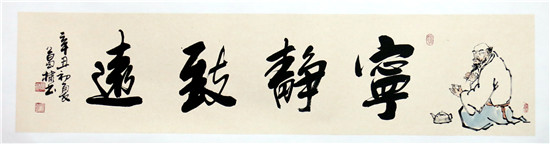 寧靜致遠
辛丑初夏